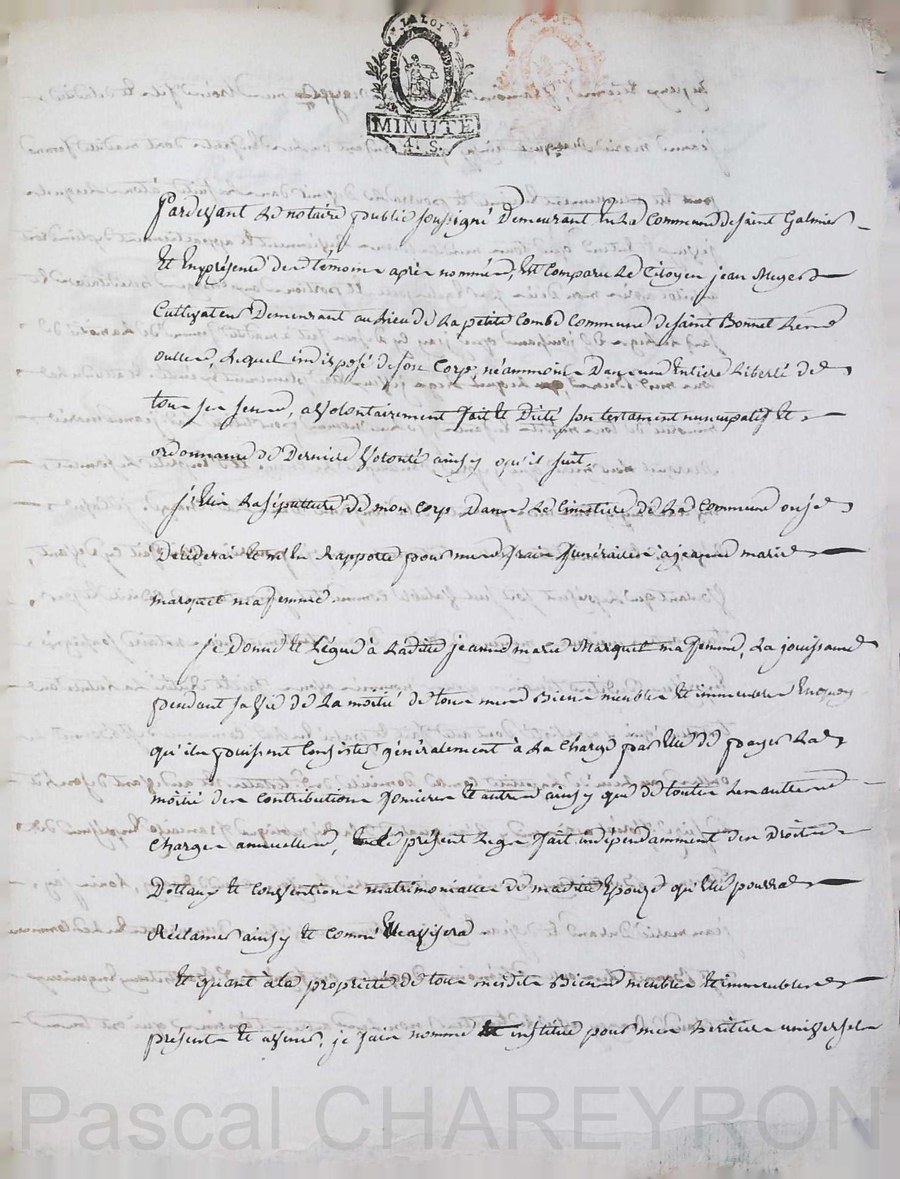 LA LOI
MINUTE
4. S.
Pardevant Le notaire public soussigné Demeurant En La Commune de Saint Galmier
Et En présence des témoins après nommés, Est Comparu Le Citoyen jean
Cultivateur Demeurant au Lieu de La petite Combe Commune de Saint Bonnet Les
oulles, Lequel indisposé de son Corps, néammoins Dans une Entière Liberté de
tous ses sens, a volontairement fait Et Dicté son testament nuncupatif Et
ordonnance de Dernière volonté ainsy qu'il suit.
j'élis La sépulture de mon Corps Dans Le Cimetière de La Commune ou je
Déciderai Et m'En Rapporte pour mes frais funéraires à jeanne marie
marquet ma femme.
je Donne Et Lègue à Ladite jeanne marie Marquet ma femme, La jouissance
pendant sa vie de La moitié de tous mes Biens meubles Et immeubles En quoy
qu'ils puissent Consister généralement à La Charge par Elle de payer La
moitié des Contributions foncières Et autres ainsy que de toutes Les autres
Charges annuelles, Le présent Legs fait indépendamment des Droits
Dottaux Et Conventions matrimonialles de madite Epouze qu'Elle pourra
Réclamer ainsy Et Comme Elle avisera.
Et quant à la propriété de tous mesdits Biens meubles Et immeubles
présents Et avenir, je fais nomme Et institue pour mes héritiers universels
Pascal CHAREYRON